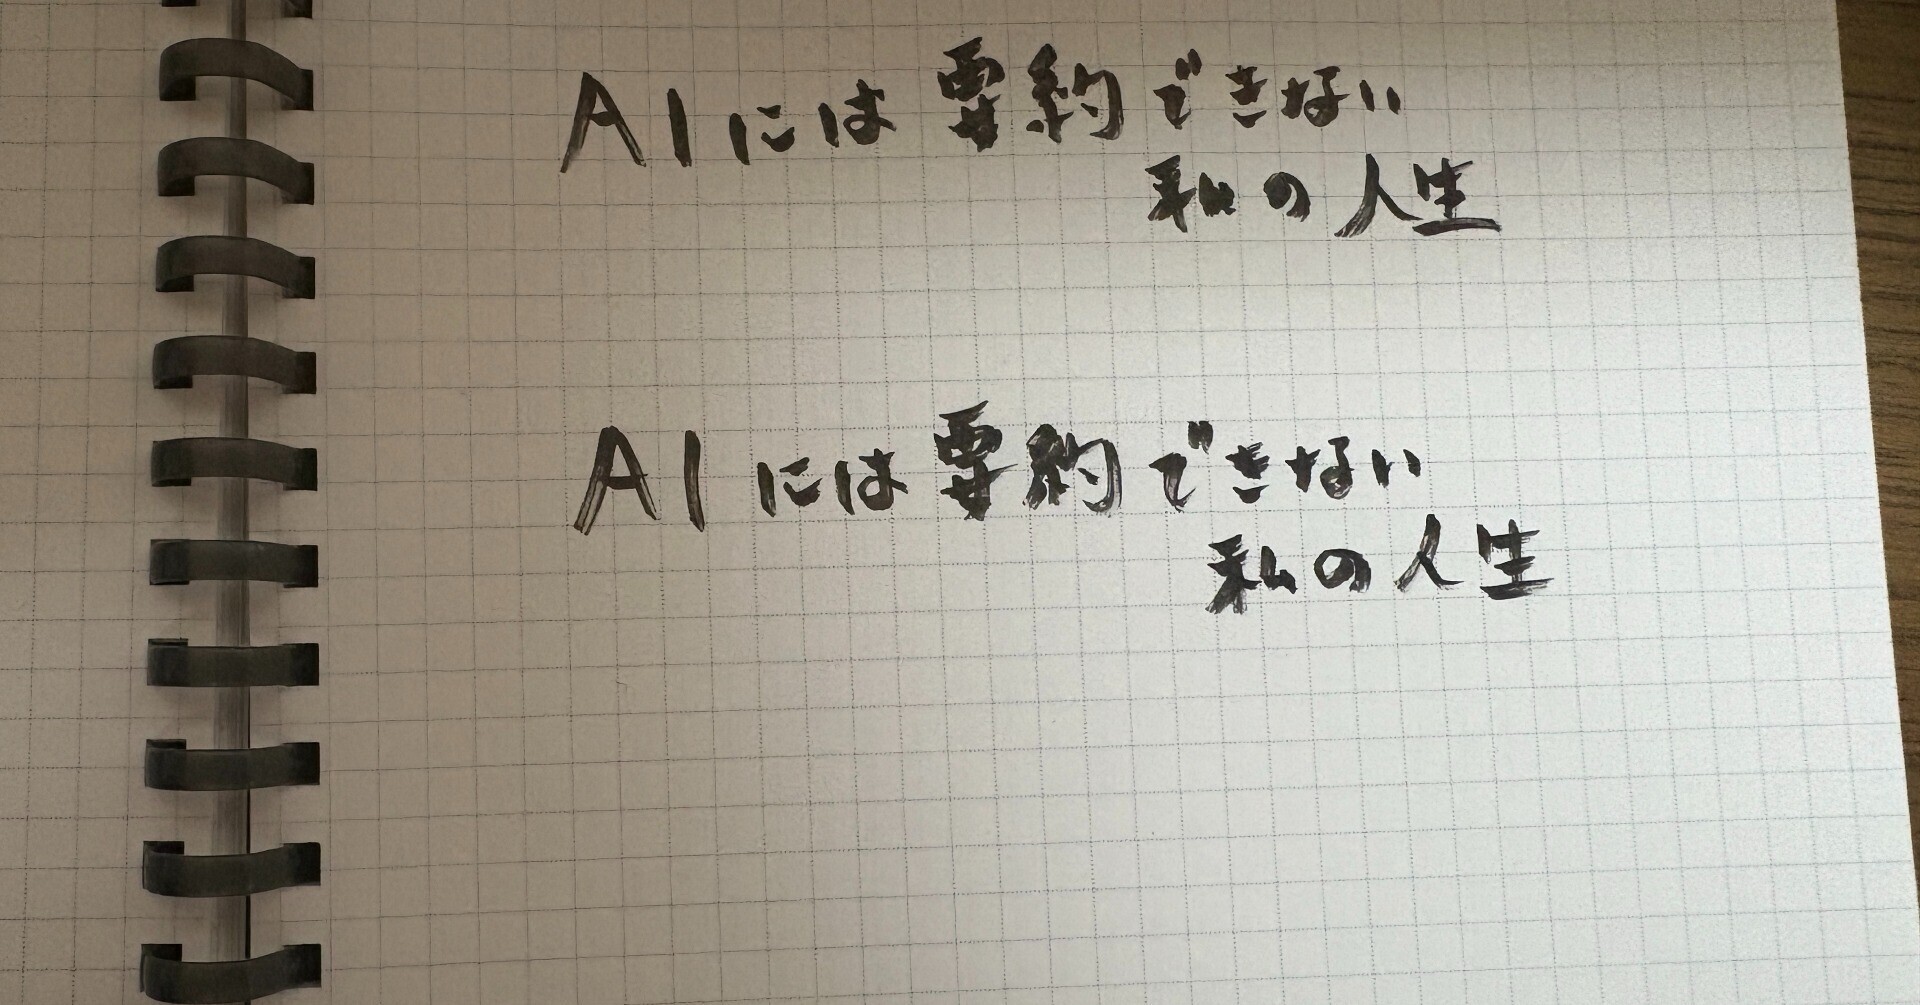 AIには要約できない
私の人生
AIには要約できない
私の人生